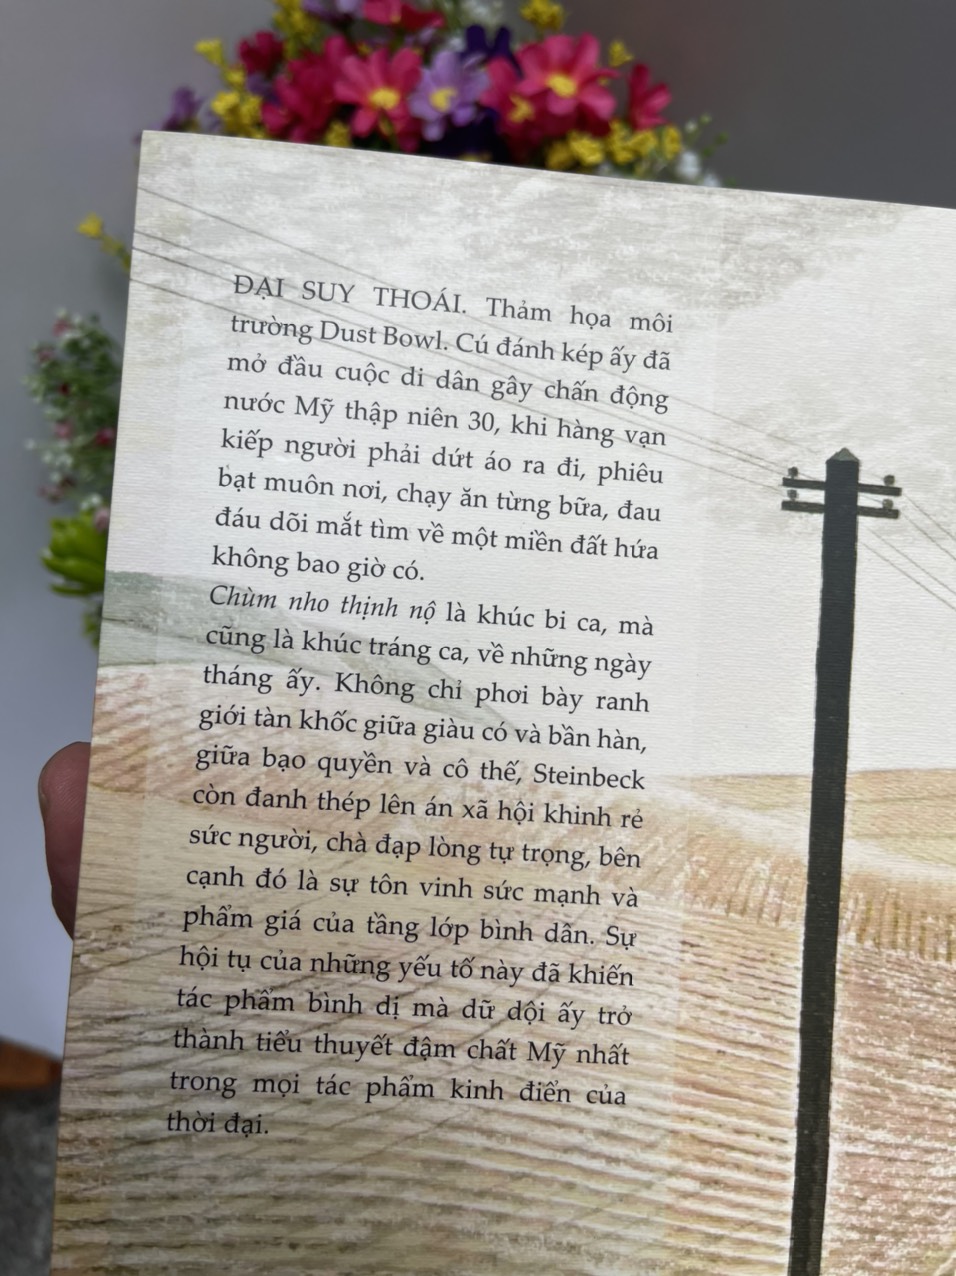 ĐẠI SUY THOÁI. Thảm họa môi
trường Dust Bowl. Cú đánh kép ấy đã
mở đầu cuộc di dân gây chấn động
nước Mỹ thập niên 30, khi hàng vạn
kiếp người phải dứt áo ra đi, phiêu
bạt muôn nơi, chạy ăn từng bữa, đau
đáu dõi mắt tìm về một miền đất hứa
không bao giờ có.
Chùm nho thịnh nộ là khúc bi ca, mà
cũng là khúc tráng ca, về những ngày
tháng ấy. Không chỉ phơi bày ranh
giới tàn khốc giữa giàu có và bần hàn,
giữa bạo quyền và cô thế, Steinbeck
còn đanh thép lên án xã hội khinh rẻ
sức người, chà đạp lòng tự trọng, bên
cạnh đó là sự tôn vinh sức mạnh và
phẩm giá của tầng lớp bình dân. Sự
hội tụ của những yếu tố này đã khiến
tác phẩm bình dị mà dữ dội ấy trở
thành tiểu thuyết đậm chất Mỹ nhất
trong mọi tác phẩm kinh điển của
thời đại.